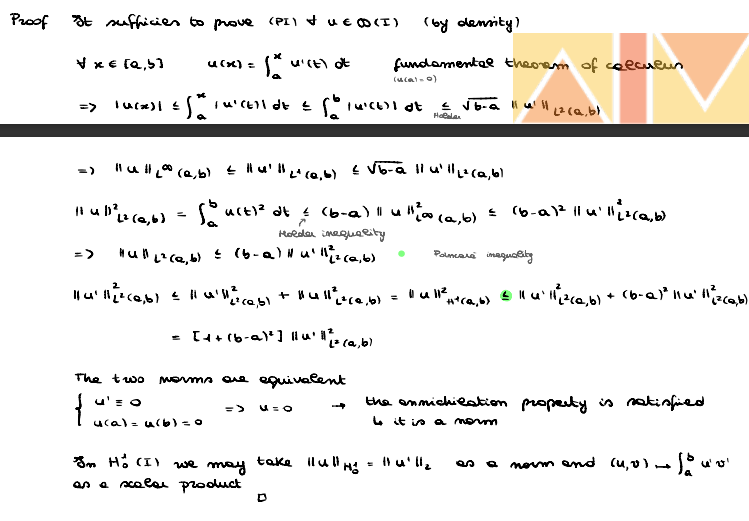 Proof It sufficies to prove (PI) ∀ u ∈ D(I) (by density)
∀ x ∈ [a,b] u(x) = ∫_a^x u'(t) dt fundamental theorem of calculus
(u(a)=0)
=> |u(x)| ≤ ∫_a^x |u'(t)| dt ≤ ∫_a^b |u'(t)| dt ≤ √(b-a) ||u'||_{L²(a,b)}
Holder
=> ||u||_{L^∞(a,b)} ≤ ||u'||_{L¹(a,b)} ≤ √(b-a) ||u'||_{L²(a,b)}
||u||²_{L²(a,b)} = ∫_a^b u(t)² dt ≤ (b-a) ||u||²_{L^∞(a,b)} ≤ (b-a)² ||u'||²_{L²(a,b)}
Holder inequality
=> ||u||_{L²(a,b)} ≤ (b-a) ||u'||²_{L²(a,b)} Poincaré inequality
||u'||²_{L²(a,b)} ≤ ||u'||²_{L²(a,b)} + ||u||²_{L²(a,b)} = ||u||²_{H¹(a,b)} ≤ ||u'||²_{L²(a,b)} + (b-a)² ||u'||²_{L²(a,b)}
= [1+(b-a)²] ||u'||²_{L²(a,b)}
The two norms are equivalent
{ u' ≡ 0
u(a) = u(b) = 0 => u=0 → the annichilation property is satisfied
↳ it is a norm
In H¹₀(I) we may take ||u||_{H¹₀} = ||u'||₂ as a norm and (u,v) → ∫_a^b u'v'
as a scalar product
□